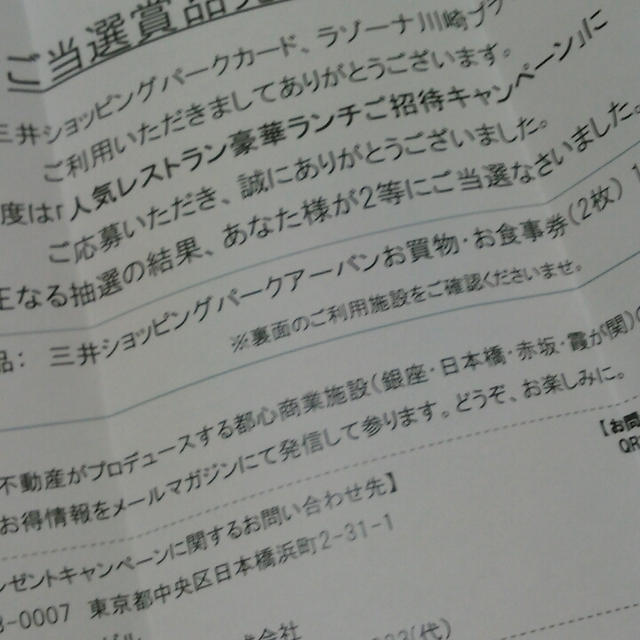 ご当選賞品
三井ショッピングパークカード、ラゾーナ川崎プ
ご利用いただきましてありがとうございます。
度は「人気レストラン豪華ランチご招待キャンペーン」に
ご応募いただき、誠にありがとうございました。
正なる抽選の結果、あなた様が2等にご当選なさいました。
品： 三井ショッピングパークアーバンお買物・お食事券（2枚）
※裏面のご利用施設をご確認くださいませ。
不動産がプロデュースする都心商業施設（銀座・日本橋・赤坂・霞が関）
お得情報をメールマガジンにて発信して参ります。どうぞ、お楽しみに。
ゼントキャンペーンに関するお問い合わせ先】
【お問
QR
-0007 東京都中央区日本橋浜町2-31-1
式会社
（代）